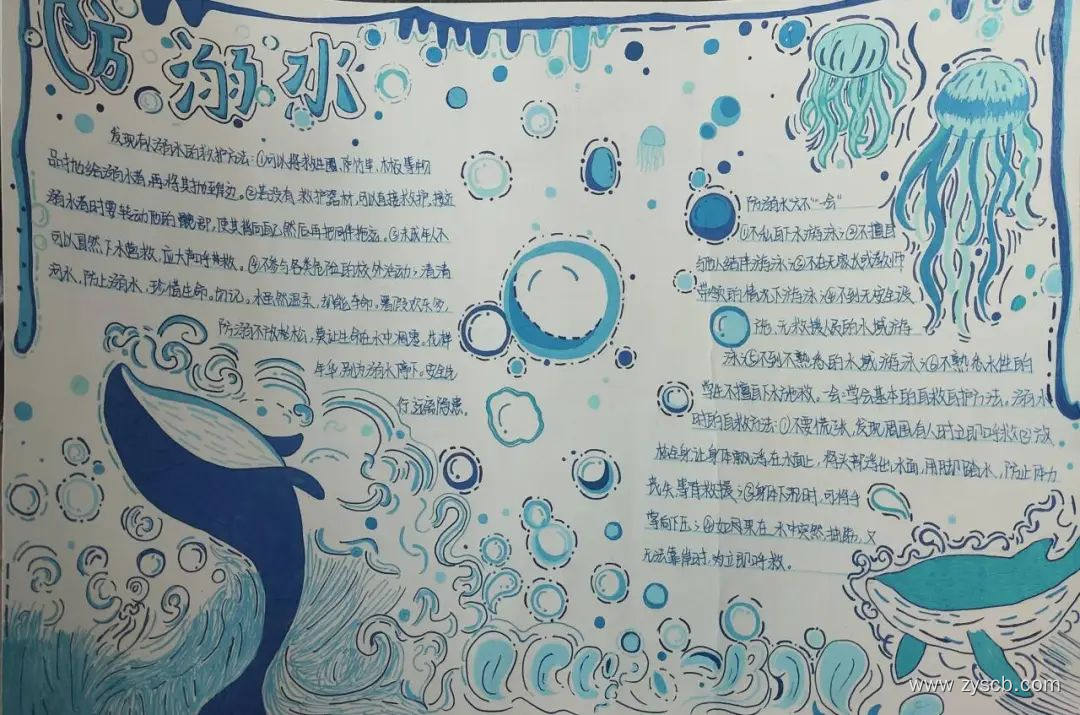 防溺水
发现有人溺水的救护方法:①可以将救生圈、竹竿、木板等物
品抛给溺水者,再将其拖至岸边。②若没有救护器材,可以直接救护,接近
溺水者时要转动他的髋部,使其背向自己然后再把同伴拖运。③未成年人不
可以贸然下水营救,应大声呼共救。④不参与各类危险的校外活动;清清
河水,防止溺水,珍惜生命,勿记。水虽然温柔,却能夺命,暑假欢乐多,
防溺不放松松,莫让生命在水中凋零。花样
年华,别为溺水停下。安全先
行远离隐患。
防溺水六不"一会"
①不私自下水游泳;②不擅自
与他人结伴游泳;③不在无家长或教师
带领的情况下游泳;④不到无安全设
施、无救援人员的水域游
泳;⑤不到不熟悉的水域游泳;⑥不熟悉水性的
学生不擅自下水施救。一会:学会基本的自救自护方法。溺水
时的自救方法:①不要慌张,发现周围有人时立即呼救;②放
松全身,让身体飘浮在水面上,将头部浮出水面,用脚踢水,防止体力
丧失,等待救援;③身体下沉时,可将手
掌向下压;④如果在水中突然抽筋,又
无法靠岸时,立即呼救。
www.zyscb.com